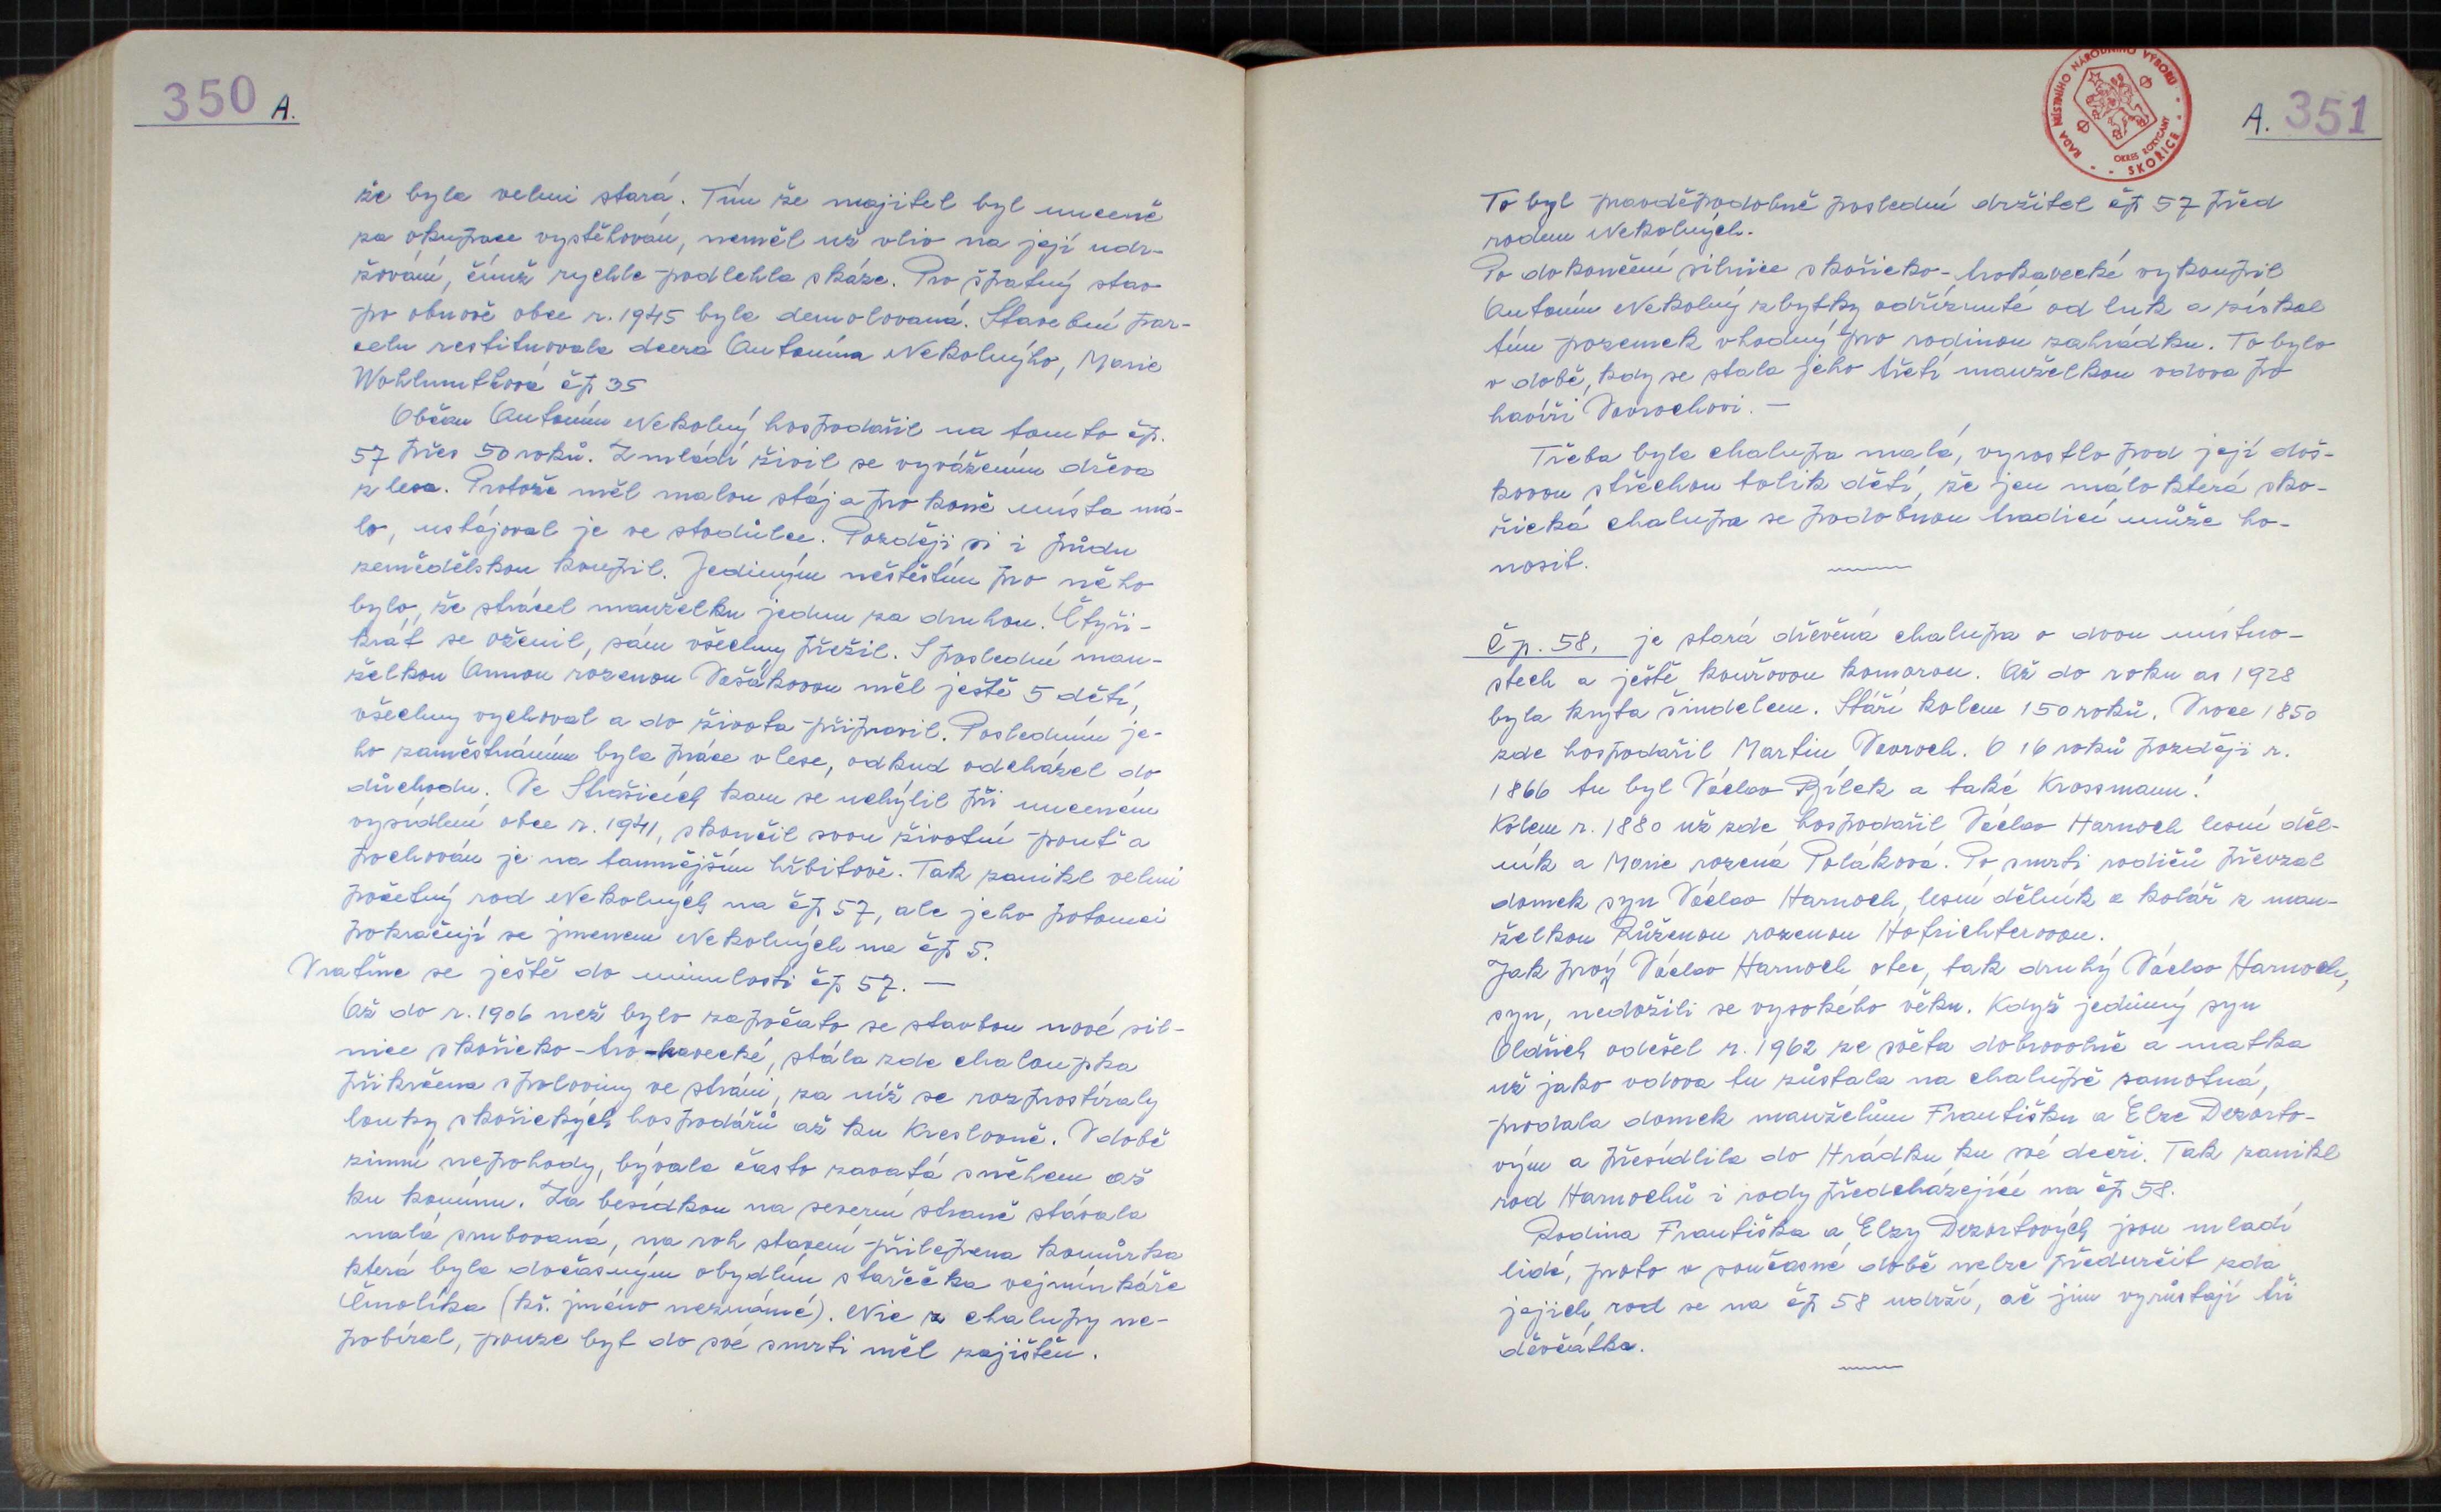 350 A.
že byla velmi stará. Tím že majitel byl nuceně
za okupace vystěhován, neměl už vliv na její udr-
žování, čímž rychle podlehla zkáze. Pro špatný stav
po obnově obce r. 1945 byla demolovaná. Stavební par-
celu restituovala dcera Antonína Nekolnýho, Marie
Wohlmuthová čp 35
Občan Antonín Nekolný hospodařil na tomto čp.
57 přes 50 roků. Z mládí živil se vyvážením dřeva
z lesa. Protože měl malou stáj a pro koně místa má-
lo, ustájoval je ve stodůlce. Později si i půdu
zemědělskou koupil. Jediným neštěstím pro něho
bylo, že ztrácel manželku jednu za druhou. Čtyři-
krát se oženil, sám všechny přežil. S poslední man-
želkou Annou rozenou Vašákovou měl ještě 5 dětí,
všechny vychoval a do života připravil. Posledním je-
ho zaměstnáním byla práce v lese, odkud odcházel do
důchodu. Ve Strašicích kam se uchýlil při nuceném
vysídlení obce r. 1941, skončil svou životní pouť a
pochován je na tamnějším hřbitově. Tak zanikl velmi
početný rod Nekolných na čp 57, ale jeho potomci
pokračují se jmenem Nekolných na čp 5.
Vraťme se ještě do minulosti čp 57. —
Až do r. 1906 než bylo započato se stavbou nové sil-
nice skořicko-tró-kavecké, stála zde chaloupka
přikrčena spoloviny ve stráni, za níž se rozprostíraly
louky skořických hospodářů až ku Kreslovně. V době
zimní nepohody, bývala často zavatá sněhem až
ku komínu. Za besídkou na severní straně stávala
malá srubovaná, na roh stavení přilepena komůrka
která byla dočasným obydlím stařečka vejminkáře
Čmolíka (kř. jméno neznámé). Nic z chalupy ne-
pobíral, pouze byt do své smrti měl zajištěn.
RADA MÍSTNÍHO NÁRODNÍHO VÝBORU
OKRES ROKYCANY
SKOŘICE
A. 351
To byl pravděpodobně poslední držitel čp 57 před
rodem Nekolných.
Po dokončení silnice skořicko-trokavecké vykoupil
Antonín Nekolný zbytky odříznuté od luk a získal
tím pozemek vhodný pro rodinou zahrádku. To bylo
v době, kdy se stala jeho třetí manželkou vdova po
havíři Vorochovi. —
Třeba byla chalupa malá, vyrostlo pod její doš-
kovou střechou tolik dětí, že jen málo která sko-
řická chalupa se podobnou tradicí může ho-
nosit.
Čp. 58, je stará dřevěná chalupa o dvou místno-
stech a ještě kouřovou komorou. Až do roku as 1928
byla kryta šindelem. Stáří kolem 150 roků. V roce 1850
zde hospodařil Martin Voroch. O 16 roků později r.
1866 tu byl Václav Bílek a také Krossmann!
Kolem r. 1880 už zde hospodařil Václav Harnoch lesní děl-
ník a Marie rozená Poláková. Po smrti rodičů převzal
domek syn Václav Harnoch, lesní dělník a kolář z man-
želkou Růženou rozenou Hofrichterovou.
Jak prvý Václav Harnoch otec, tak druhý Václav Harnoch,
syn, nedožili se vysokého věku. Když jedinný syn
Oldřich odešel r. 1962 ze světa dobrovolně a matka
už jako vdova tu zůstala na chalupě samotná,
prodala domek manželům Františku a Elze Dezorto-
vým a přesídlila do Hrádku ku své dceři. Tak zanikl
rod Harnochů i rody předcházející na čp 58.
Rodina Františka a Elzy Dezortových jsou mladí
lidé, proto v současné době nelze předurčit zda
jejich rod se na čp 58 udrží, ač jim vyrůstají tři
děvčátka.